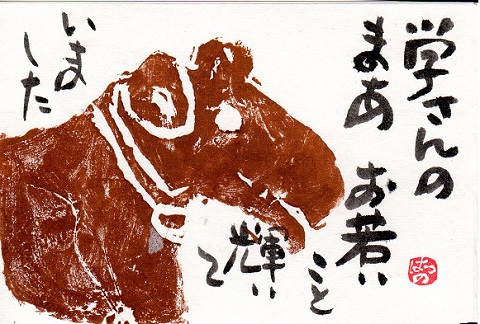 学さんの
まあ お若い
こと
輝い
て
いま
した